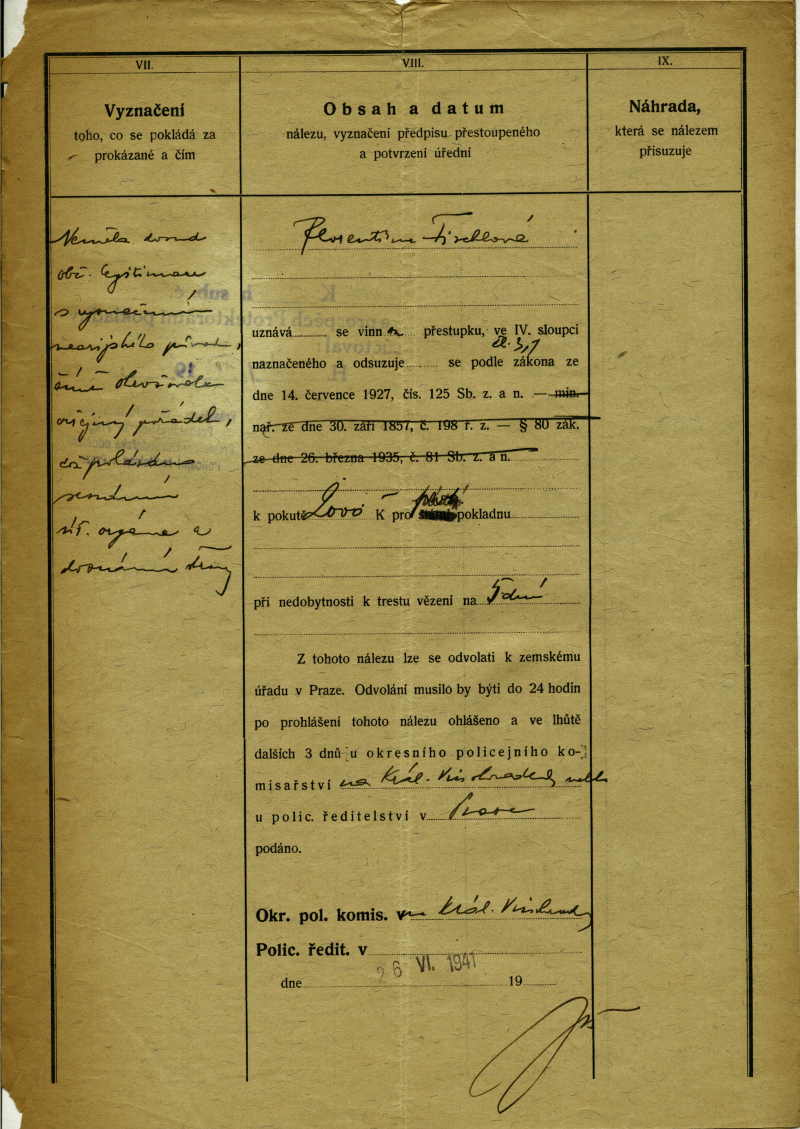 VII.
Vyznačení
toho, co se pokládá za
prokázané a čím
VIII.
Obsah a datum
nálezu, vyznačení předpisu přestoupeného
a potvrzení úřední
IX.
Náhrada,
která se nálezem
přisuzuje
Neměla dosud
obč. legitimaci
s vyznačením
nearijského původu,
čímž ohrožovala
veřejný pořádek,
což pokládáno
seznáním
stř. orgánu a
doznáním
Florentina Fischlová
uznává se vinn přestupku, ve IV. sloupci
čl. 3,1
naznačeného a odsuzuje se podle zákona ze
dne 14. července 1927, čís. 125 Sb. z. a n. — min.
nař. ze dne 30. září 1857, č. 198 ř. z. — § 80 zák.
ze dne 26. března 1935, č. 81 Sb. z. a n.
k pokutě K pro pokladnu
při nedobytnosti k trestu vězení na 5 dnů
Z tohoto nálezu lze se odvolati k zemskému
úřadu v Praze. Odvolání musilo by býti do 24 hodin
po prohlášení tohoto nálezu ohlášeno a ve lhůtě
dalších 3 dnů u okresního policejního ko-
misařství na Král. Vinohradech nebo
u polic. ředitelství v Praze
podáno.
Okr. pol. komis. v na Král. Vinohrady
Polic. ředit. v
26 VI. 1941
dne 19